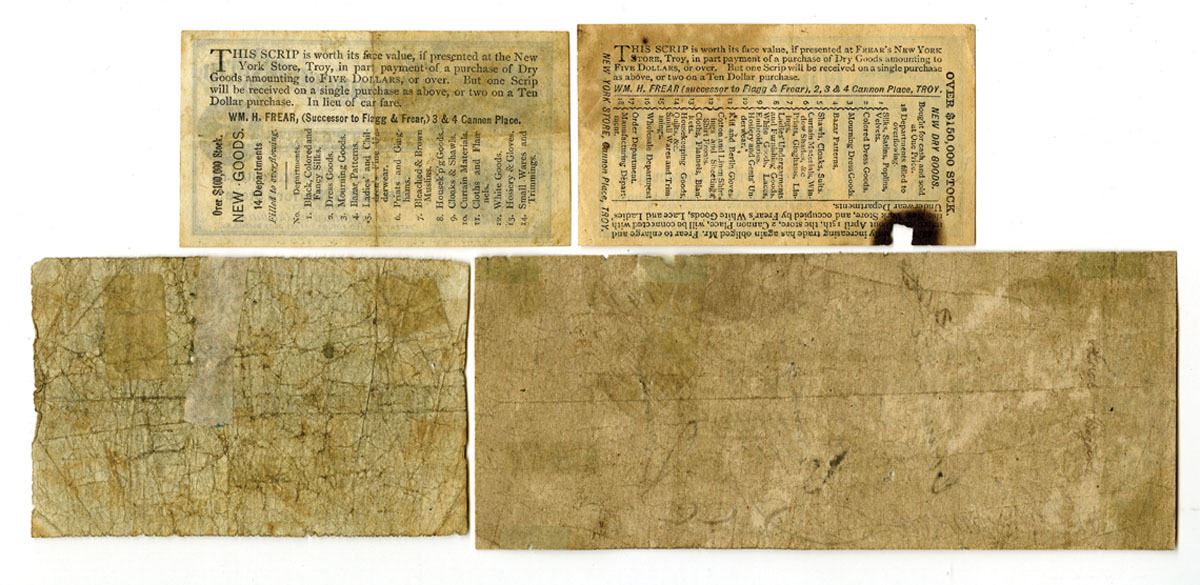 THIS SCRIP is worth its face value, if presented at the New
York Store, Troy, in part payment of a purchase of Dry
Goods amounting to FIVE DOLLARS, or over. But one Scrip
will be received on a single purchase as above, or two on a Ten
Dollar purchase. In lieu of car fare.
WM. H. FREAR, (Successor to Flagg & Frear,) 3 & 4 Cannon Place.
Over $100,000 Stock.
NEW GOODS.
14 Departments
Filled to overflowing.
No. Departments.
1. Black, Colored and
Fancy Silks.
2. Dress Goods.
3. Mourning Goods.
4. Bazar Patterns.
5. Ladies' and Chil-
dren's
derwear.
6. Prints and Ging-
hams.
7. Bleached & Brown
Muslins.
8. Housek'p'g Goods.
9. Cloaks & Shawls.
10. Curtain Materials.
11. Cloths and Flan-
nels.
12. White Goods.
13. Hosiery & Gloves.
14. Small Wares and
Trimmings.
THIS SCRIP is worth its face value, if presented at FREAR'S NEW YORK
STORE, Troy, in part payment of a purchase of Dry Goods amounting to
FIVE DOLLARS, or over. But one Scrip will be received on a single purchase
as above, or two on a Ten Dollar purchase.
WM. H. FREAR (successor to Flagg & Frear), 2, 3 & 4 Cannon Place, TROY.
NEW YORK STORE, Cannon Place, TROY.
OVER $150,000 STOCK.
NEW DRY GOODS.
Bought for cash, and sold
at One Price.
18 Departments filled to
overflowing:
1 Silks, Satins, Poplins,
Velvets.
2 Colored Dress Goods.
3 Mourning Dress Goods.
4 Bazar Patterns.
5 Shawls, Cloaks, Suits.
6 Curtain Materials, Win-
dow Shades, &c
7 Prints, Ginghams, Lin-
ings.
8 Ladies' Undergarments
and Furnishing Goods.
9 White Goods, Laces,
Embroideries.
10 Hosiery and Gents' Un-
derwear.
11 Kid and Berlin Gloves
12 Cotton and Linen Shirt-
ings and Sheetings
13 Cloths, Flannels, Blan-
kets.
14 Housekeeping Goods,
Quilts, &c.
15 Small Wares and Trim-
mings.
16 Wholesale Department
17 Order Department.
18 Manufacturing Depart-
ment.
increasing trade has again obliged Mr. Frear to enlarge and
April 15th, the store, 2 Cannon Place, will be connected with
Store, and occupied by Frear's White Goods, Lace and Ladies'
Underwear Departments.